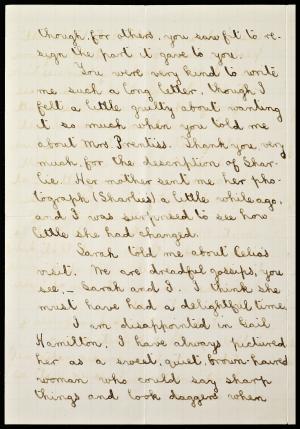 though, for others, you saw fit to re-
sign the part it gave to you.
You were very kind to write
me such a long letter, though I
felt a little guilty about wanting
it so much when you told me
about Mrs. Prentiss. Thank you, very
much, for the description of Shar-
lie. Her mother sent me her pho-
tograph (Sharlie's) a little while ago,
and I was surprised to see how
little she had changed.
Sarah told me about Celia's
visit. We are dreadful gossips, you
see, – Sarah and I. I think she
must have had a delightful time.
I am disappointed in Gail
Hamilton. I have always pictured
her as a sweet, quiet, brown-haired
woman who could say sharp
things and look daggers when